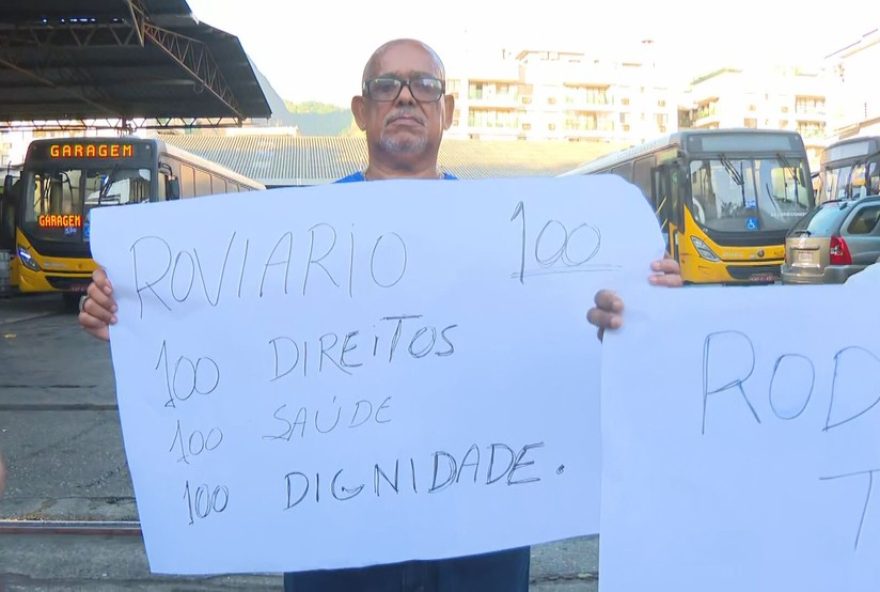 GARAGEM
GARAGEM
ROVIARIO 100
100 DIREITOS
100 SAÚDE
100 DIGNIDADE.
ROD
T